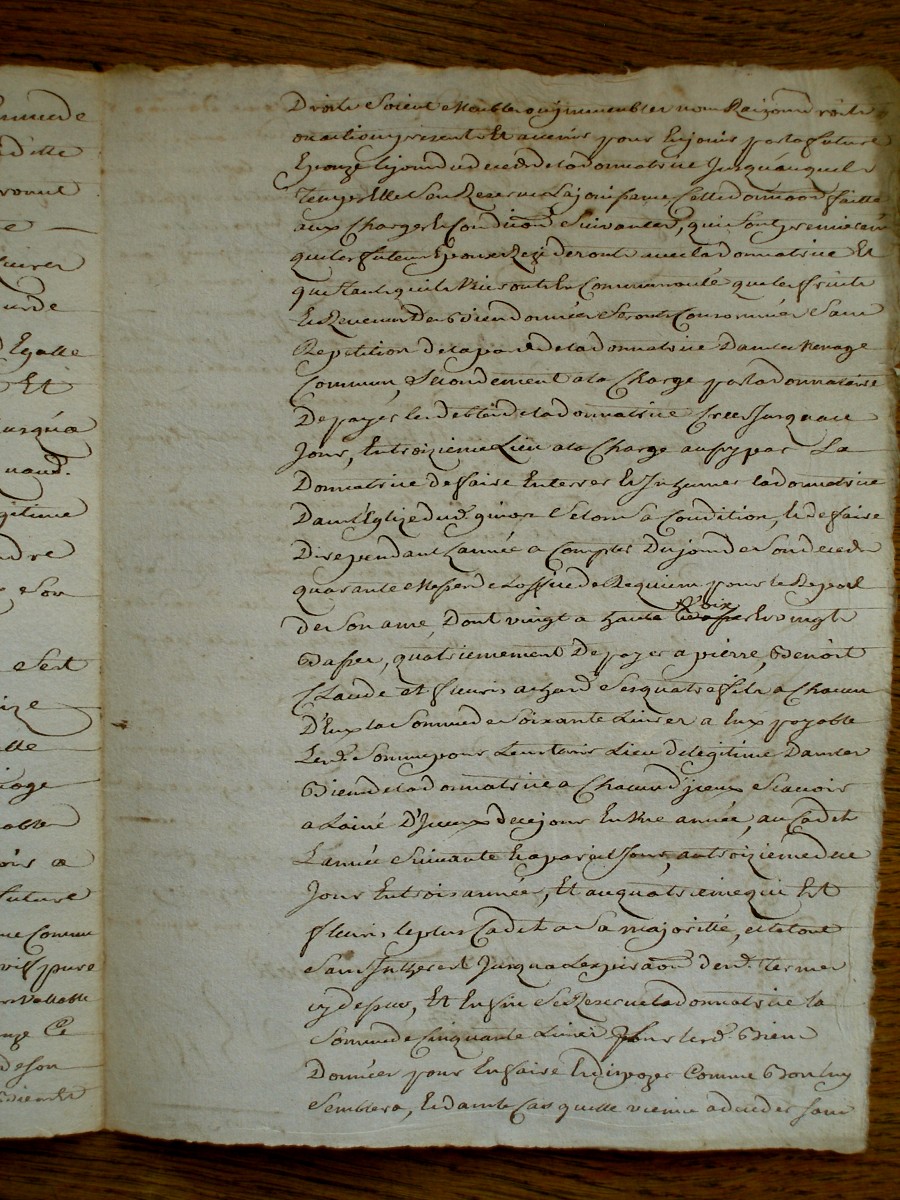 mmede
d'elle
e
ourde
Egalle
Et
jusqua
gitime
ndre
e Son
Sert
elle
iage
future
me Comme
Vallable
Ce
deson
Droits Soient Meubles ou jmmeubles nom Raizon droits
ou action presents Et avenir pour En jouir par la future
Epouze le jour du deceds de la donnatrice Jusqu'auquel
temps Elle S'en Reserve La jouissance, Cette donnaon faitte
aux Charges Et Conditions Suivantes, qui Sont premierem
que les futeurs Epoux Rezideront avec la donnatrice Et
que tant qu'ils Vivront En Communauté que les fruits
Et Revenus Des Biens donnés Seront Consommés Sans
Repetition de la part de la donnatrice Dans le Menage
Commun, Secondement a la Charge par la donnataire
De payer les debtes de la donnatrice Crees Jusqu'a ce
Jour, En troizieme Lieu a la Charge aussy par La
Donnatrice de faire Enterrer Et Inhumer la donnatrice
Dans l'Eglize dud. Selon Sa Condition, Et de faire
Dire pendant L'année a Compter Du jour de Son deceds
quarante Messes de L'office de Requiem pour le Repos
de Son ame, Dont vingt a haute Voix Et vingt
Basses, quatriemement De payer a pierre, Benoit
Claude et fleuris achard Ses quatre fils a Chacun
D'Eux la Somme de Soixante Livres a Eux payable
Lesd. Sommes pour Leur tenir Lieu de legitime Dans les
Biens de la donnatrice a Chacun d'jceux Scavoir
a Lainé D'jceux de ce jour En Une année, au Cadet
L'année Suivante Et a pareil Jour, au troizieme de ce
Jour En trois années, Et au quatrieme qui Est
fleuris le plus Cadet a Sa majorité, et le tout
Sans Intherest Jusqu'a L'expiraon desd. termes
cy dessus, Et Enfin Se Reserve la donnatrice la
Somme de Cinquante Livres Sur lesd. Biens
Donnés pour En faire Et dispozer Comme Bon luy
Semblera, Et dans le Cas quelle vienne a deceder Sans